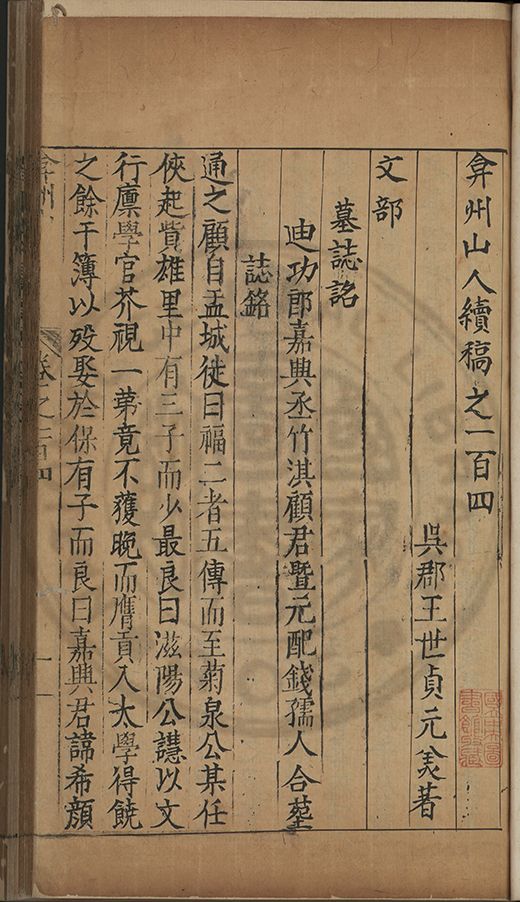 弇州山人續稿之一百四
吳郡王世貞元美著
文部
墓誌銘
迪功郎嘉興丞竹淇顧君暨元配錢孺人合塟
誌銘
通之顧自盂城徙曰福二者五傳而至菊泉公某任
俠起貲雄里中有三子而少最良曰滋陽公讓以文
行廩學官芥視一第竟不獲晚而膺貢入太學得饒
之餘干簿以歿娶於保有子而良曰嘉興君諱希顔
卷之一百四